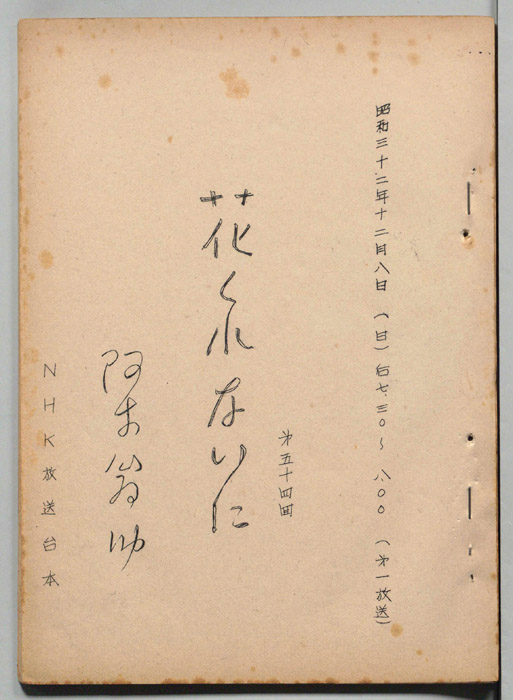 昭和三十二年十二月八日 (日) 后七.三〇〜八.〇〇 (第一放送)
第五十四回
花くれないに
阿木翁助
NHK放送台本